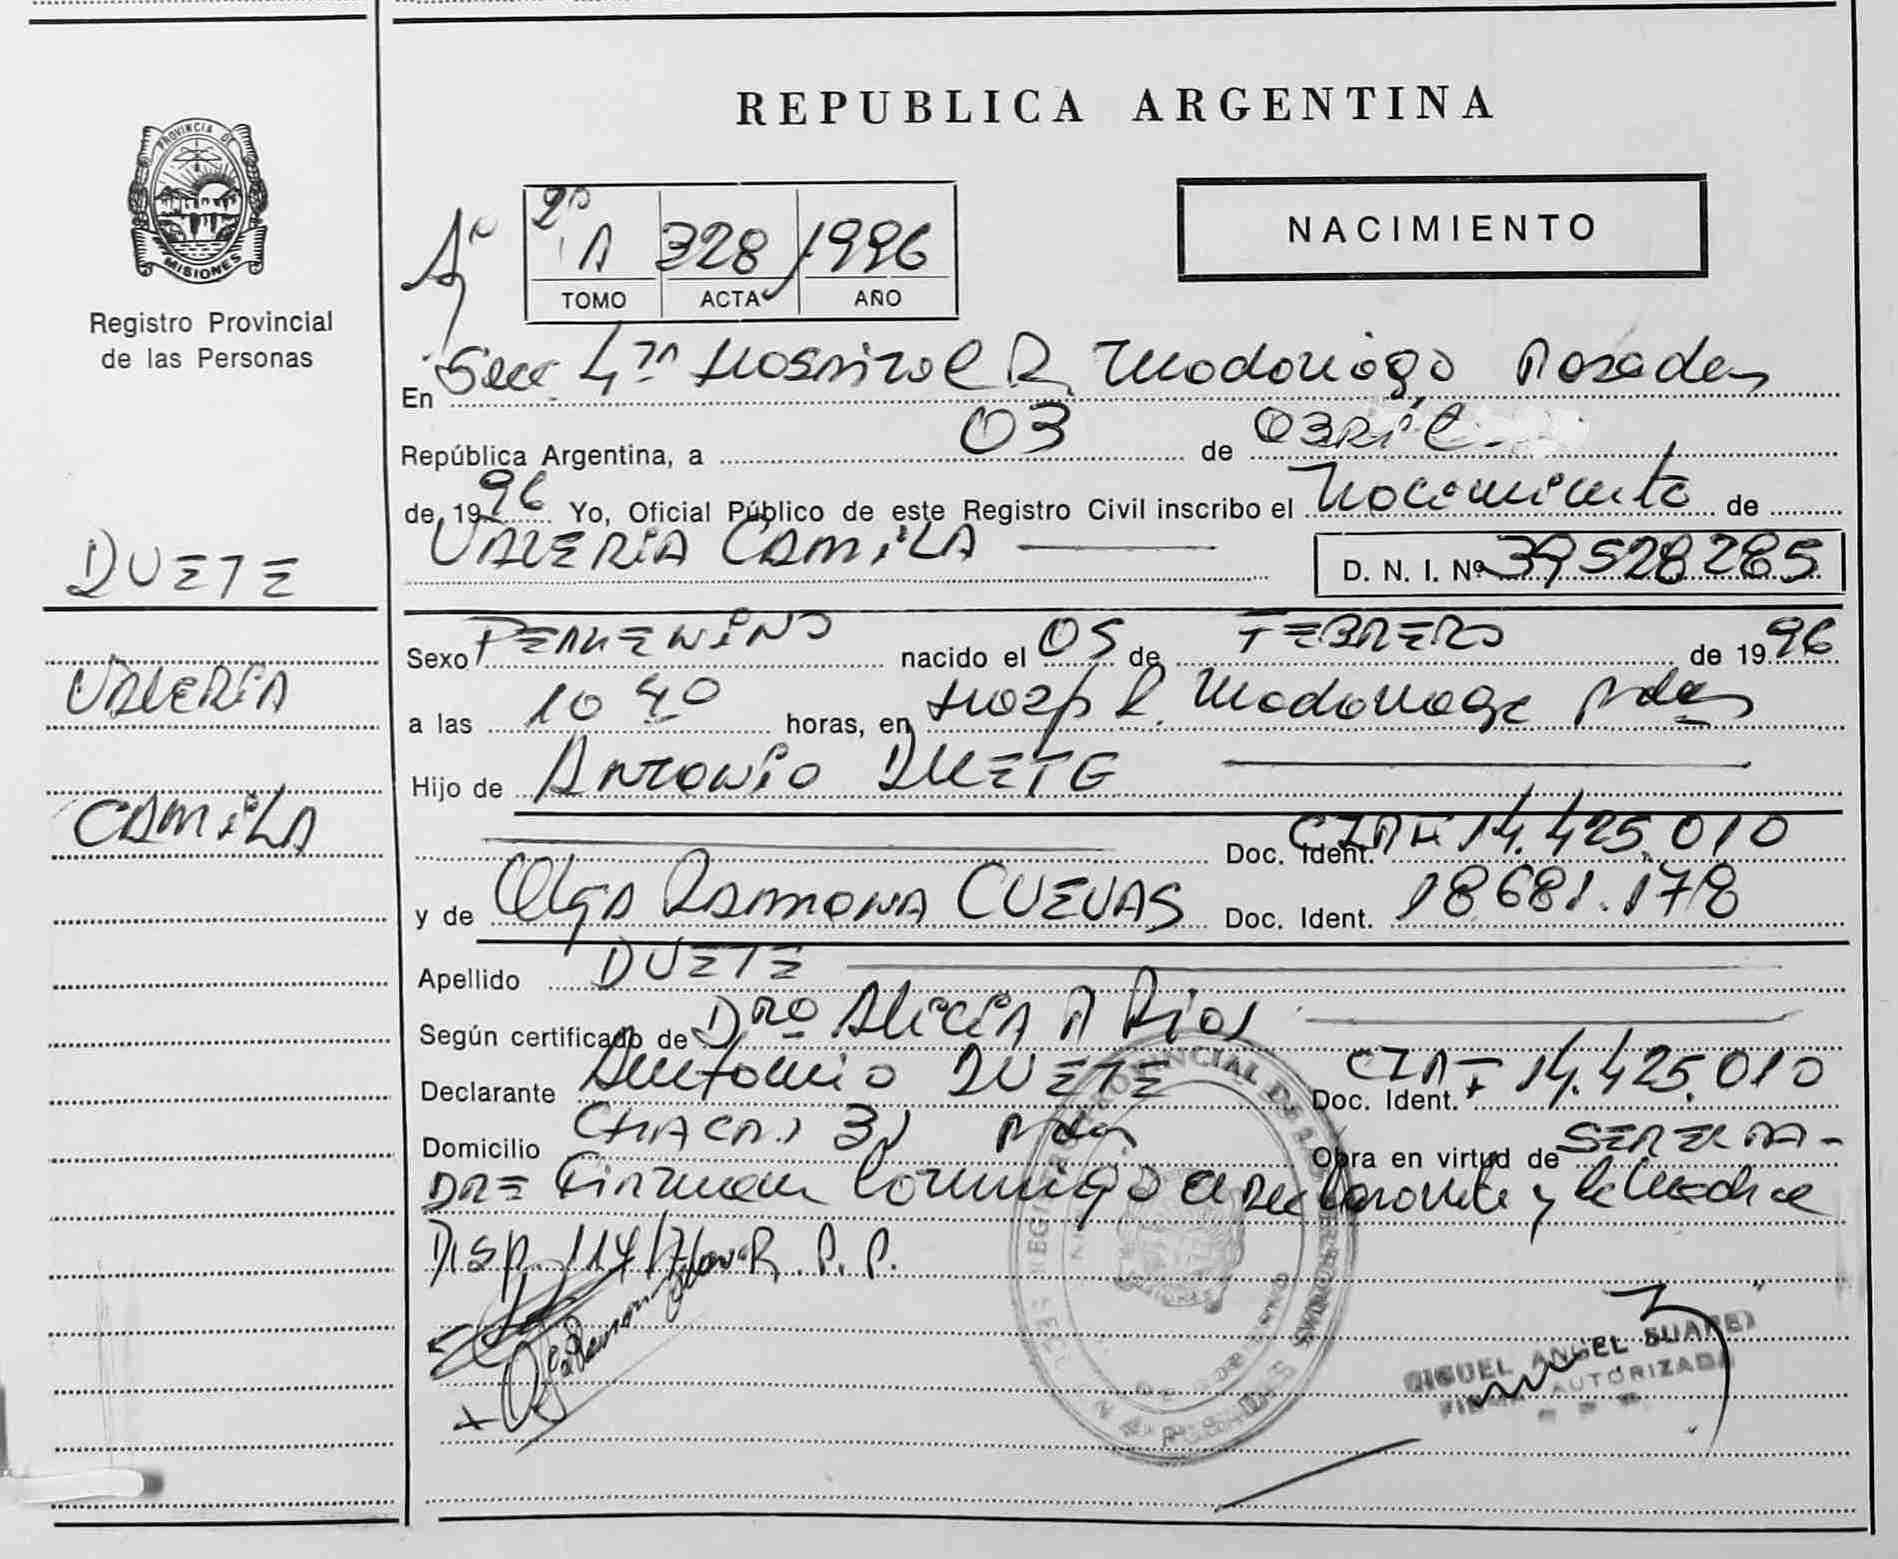 PROVINCIA DE
MISIONES
Registro Provincial
de las Personas
DUETE
VALERIA
CAMILA
REPUBLICA ARGENTINA
NACIMIENTO
Aº 2º A 328 1996
TOMO ACTA AÑO
En Secc 4ta Hospital R Madariaga Posadas
República Argentina, a 03 de abril
de 1996 Yo, Oficial Público de este Registro Civil inscribo el Nacimiento de
VALERIA CAMILA D. N. I. Nº 39528285
Sexo FEMENINO nacido el 05 de FEBRERO de 1996
a las 10 40 horas, en Hosp R. Madariaga Pdas
Hijo de ANTONIO DUETE
Doc. Ident. 14.425.010
y de Olga RAMONA CUEVAS Doc. Ident. 18681.178
Apellido DUETE
Según certificado de Dra Alicia A Rios
Declarante Antonio DUETE Doc. Ident. 14.425.010
Domicilio CHACRA 31 Pdas Obra en virtud de SER EL PA-
DRE Firman conmigo el declarante y la madre
Disp. 114/ R. P. P.
REGISTRO PROVINCIAL DE LAS PERSONAS
MIGUEL ANGEL SUAREZ
FIRMA AUTORIZADA